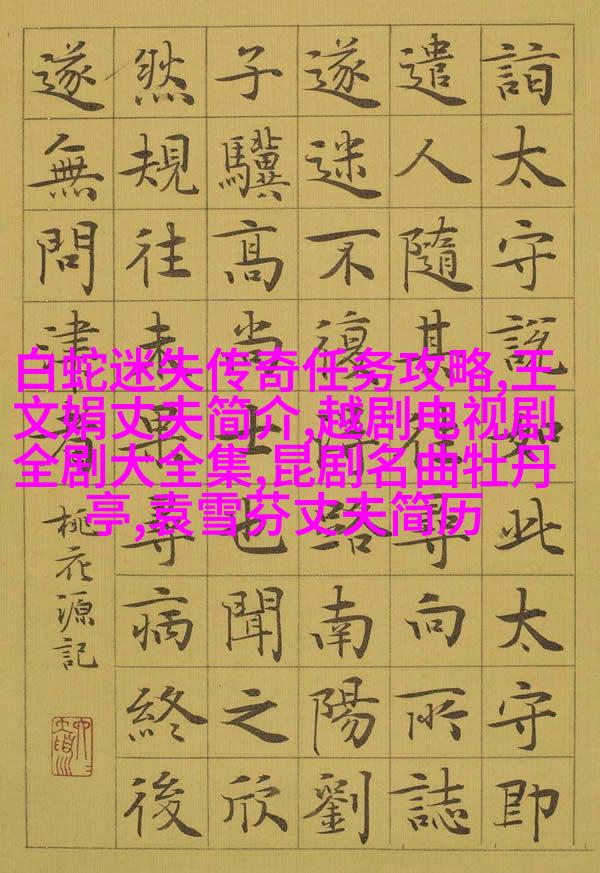 白蛇迷失传奇任务攻略,王
文娟丈夫简介,越剧电视剧
全剧大全集,昆剧名曲牡丹
亭,袁雪芬丈夫简历
詣太守說如此太守即
遣人隨其往尋向所誌
遂迷不復得路南陽劉
子驥髙尚士也聞之欣
然規往未果尋病終後
遂無問津者
桃花源記